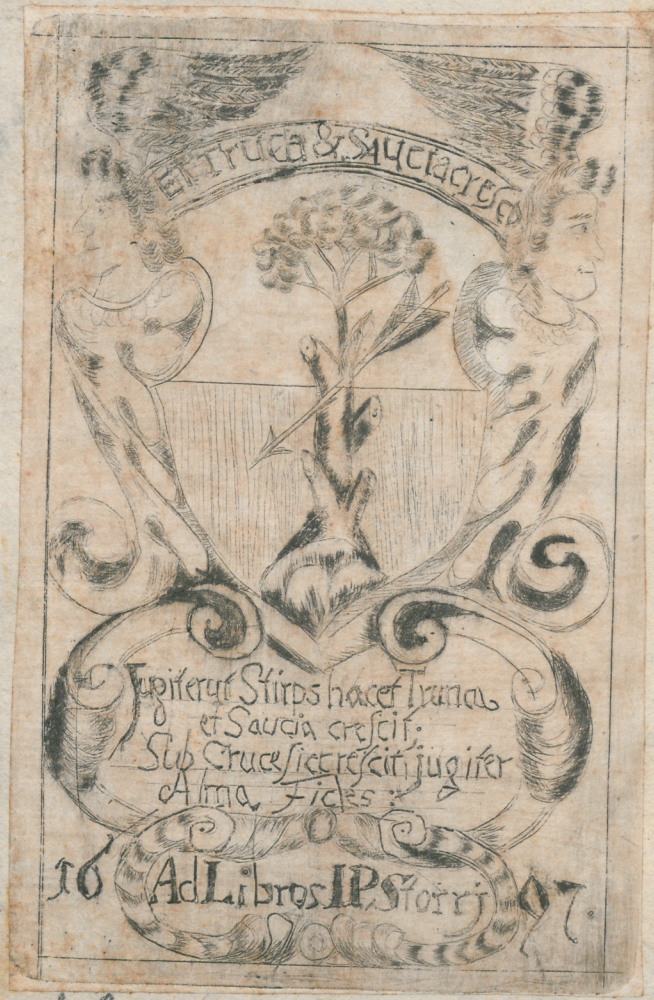 Et Truca & Saucia cresco
Jugiter ut Stirps hac et Trunca
et Saucia creſcit;
Sub Cruce ſic creſcit jugiter
Alma Fides:
16 Ad Libros IP. Storri 97.